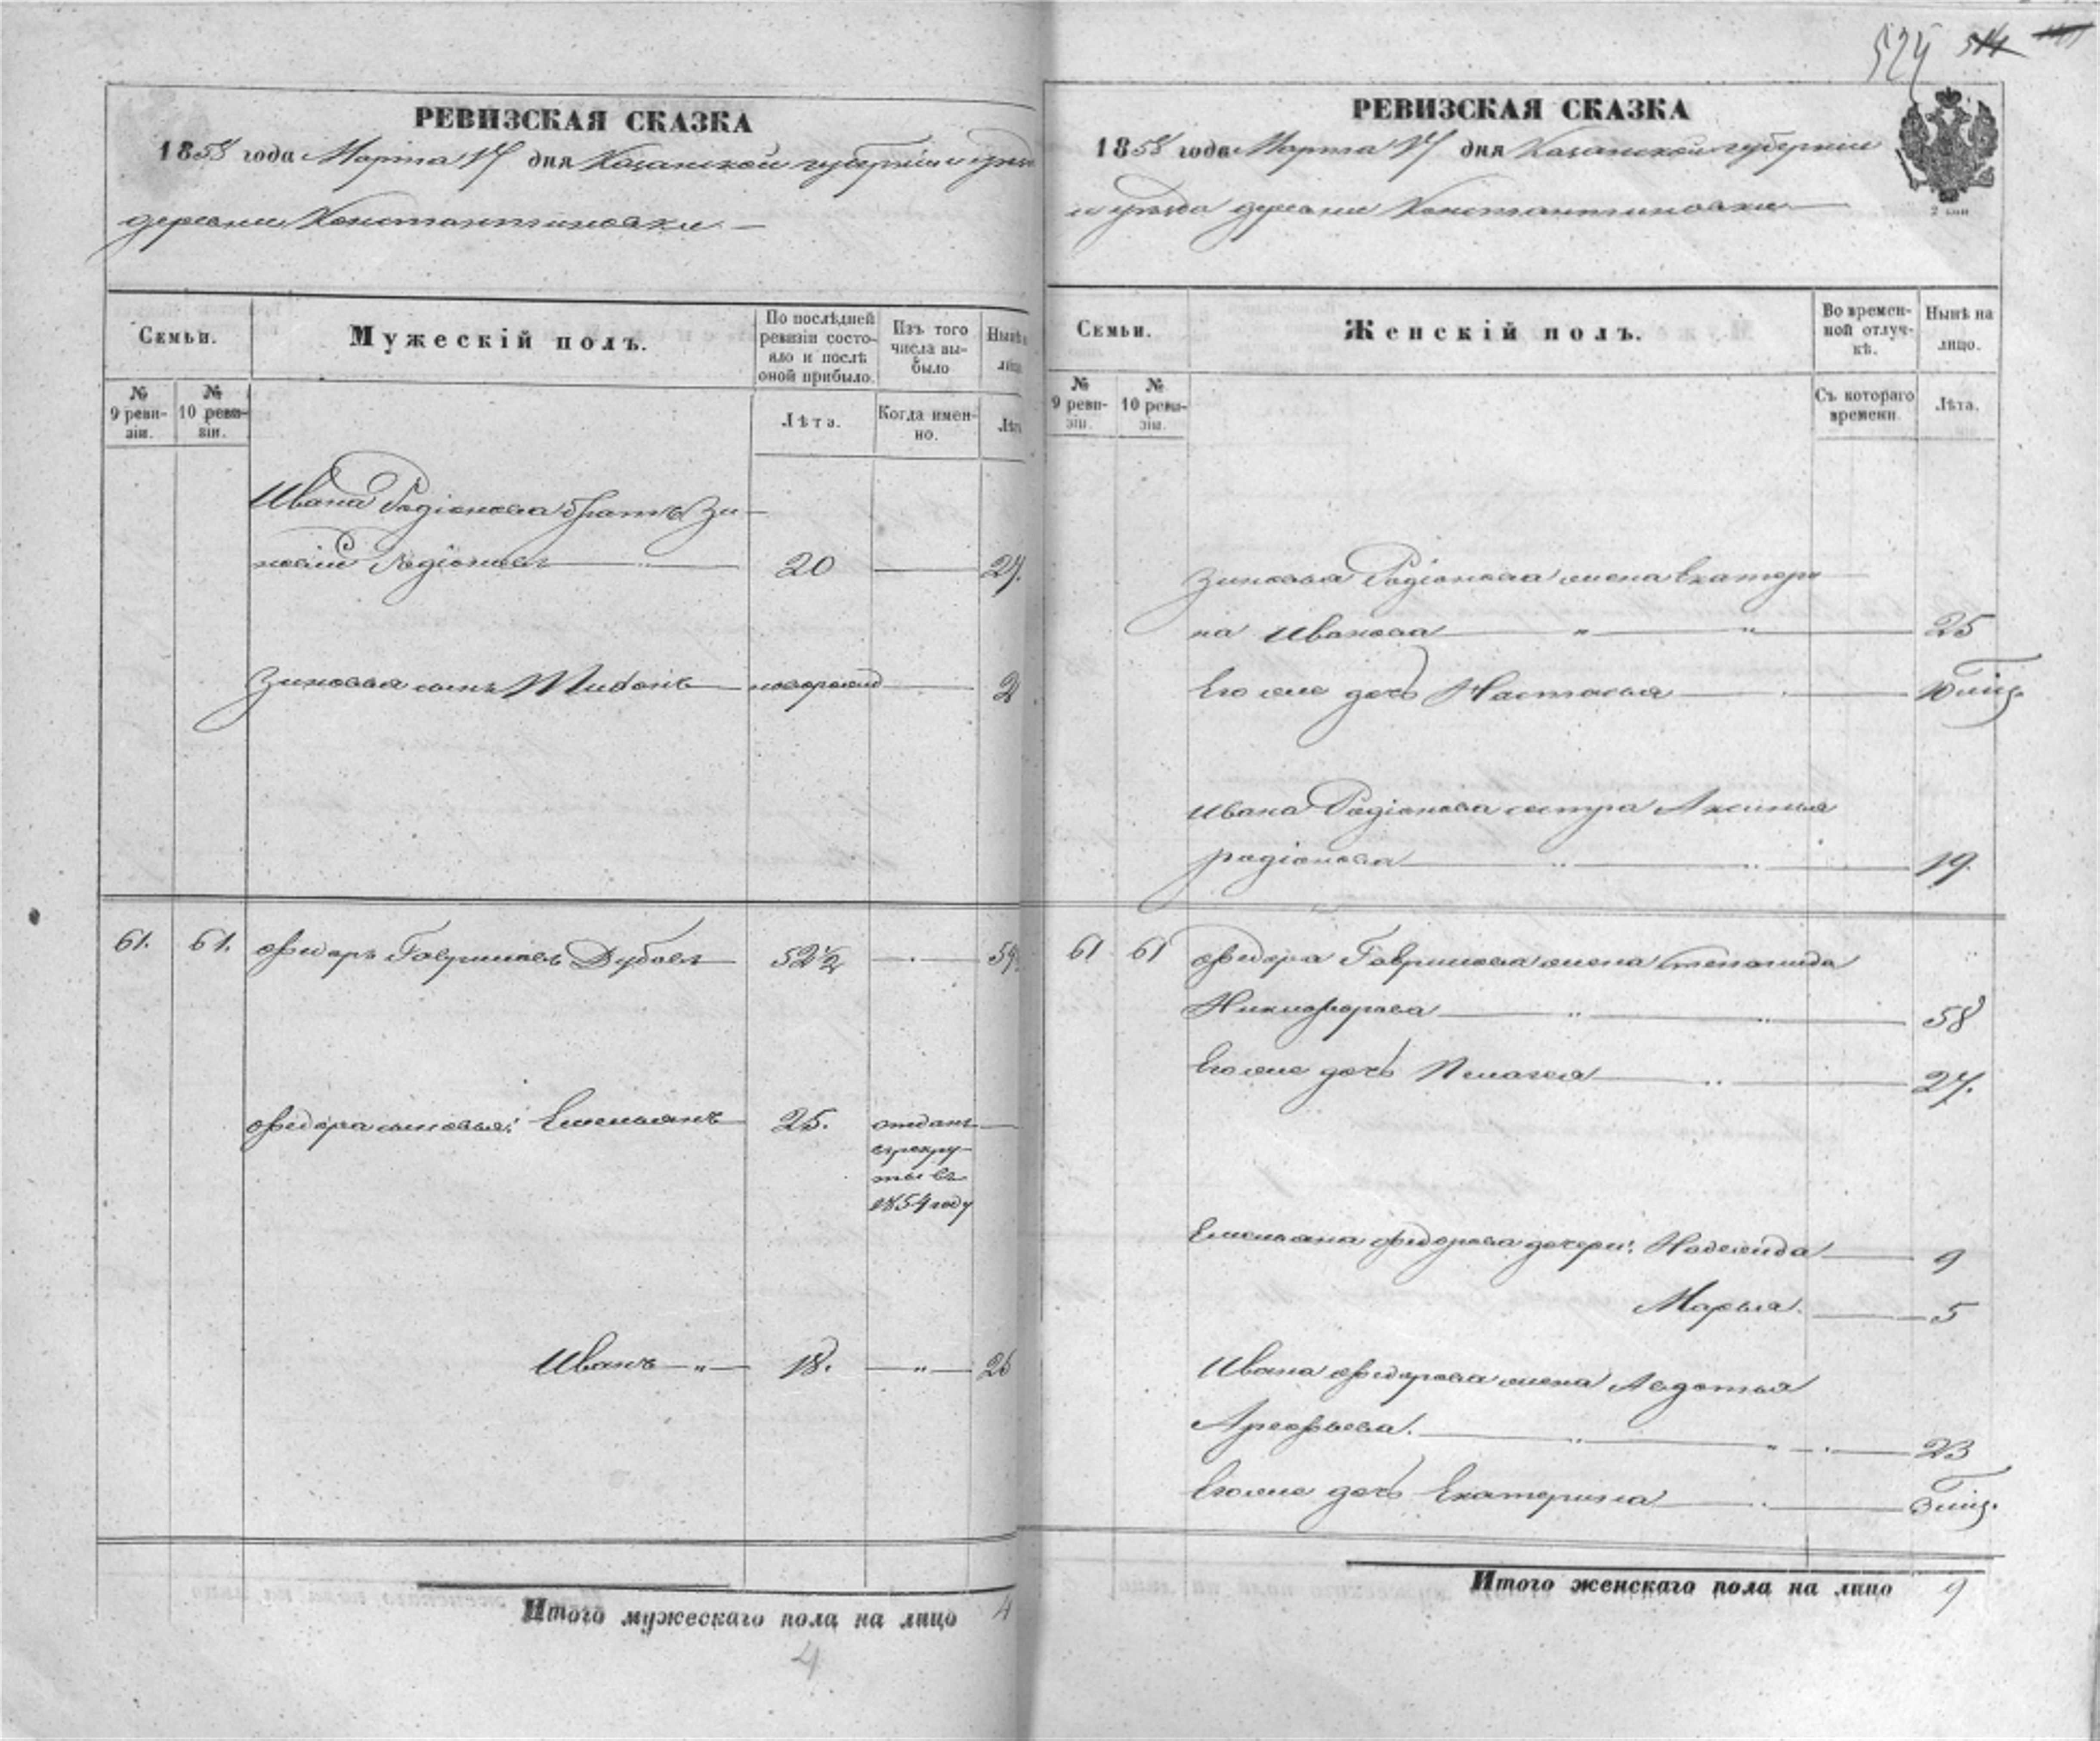 РЕВИЗСКАЯ СКАЗКА
1858 года Марта 17 дня Казанской губернiи и уезда
деревни Константиновки
Семьи.
Мужескiй полъ.
По послѣдней ревизiи состояло и послѣ оной прибыло.
Изъ того числа выбыло
Нынѣ
№ 9 ревизiи.
№ 10 ревизiи.
Лѣта.
Когда именно.
Лѣта
Ивана Родiонова братъ Зи-
новiй Родiоновъ 20 27.
Зиновья сынъ новорожд 2
61. 61. Федоръ Гавриловъ Дубовъ 52½ 59
Федора сыновья: Емельянъ 25. отданъ
в рекру-
ты въ
1854 году
Иванъ 18. 26
Итого мужескаго пола на лицо 4
4
524 514
РЕВИЗСКАЯ СКАЗКА
1858 года Марта 17 дня Казанской губернiи
и уезда деревни Константиновки
2 коп
Семьи.
Женскiй полъ.
Во временной отлучкѣ.
Нынѣ на лицо.
№ 9 ревизiи.
№ 10 ревизiи.
Съ котораго времени.
Лѣта.
Зиновья Родiонова жена Екатери
на Иванова 25
Его же дочь Настасья 10 мѣц.
Ивана Родiонова сестра Аксинья
родiонова 19.
61 61 Федора Гаврилова жена Степанида
Никифорова 58
Его же дочь Пелагея 27.
Емельяна Федорова дочери: Надежда 9
Марья. 5
Ивана Федорова жена Авдотья
Арефьева. 23
Его же дочь Екатерина 3 мѣц.
Итого женскаго пола на лицо 9